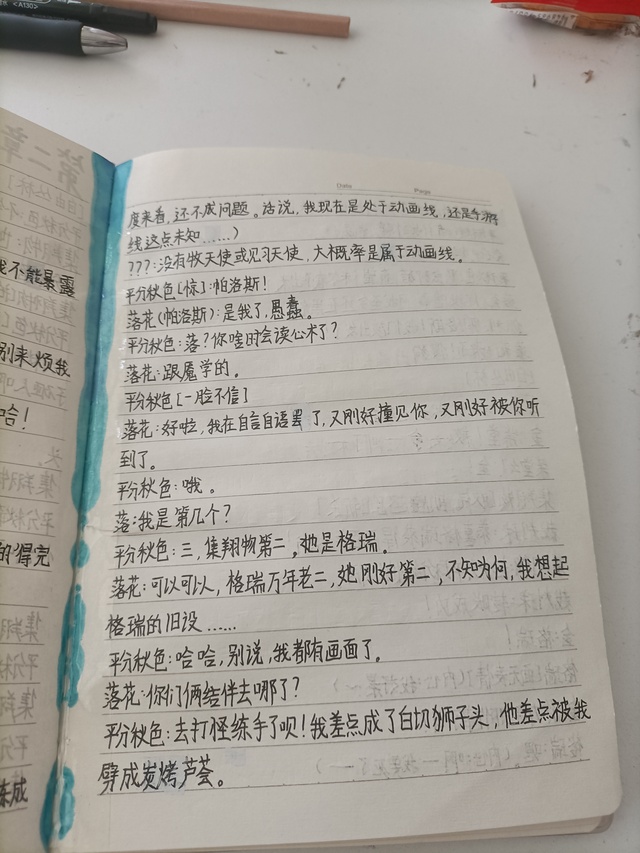 <A130>
Date
Page
第二章
我不能暴露
别来烦我
哈！
的得完
陈成
度来看，还不成问题。话说，我现在是处于动画线，还是手游
线这点未知……）
???:没有牧天使或见习天使，大概率是属于动画线。
平分秋色[惊]:帕洛斯！
落花(帕洛斯):是我了,愚蠢。
平分秋色:落?你啥时会读心术了？
落花:跟魇学的。
平分秋色[一脸不信]
落花:好啦,我在自言自语罢了,又刚好撞见你,又刚好被你听
到了。
平分秋色:哦。
落:我是第几个？
平分秋色:三,集翔物第二。她是格瑞。
落花:可以可以,格瑞万年老二,她刚好第二,不知为何,我想起
格瑞的旧设……
平分秋色:哈哈,别说,我都有画面了。
落花:你们俩结伴去哪了？
平分秋色:去打怪练手了呗！我差点成了白切狮子头,他差点被我
劈成炭烤芦荟。